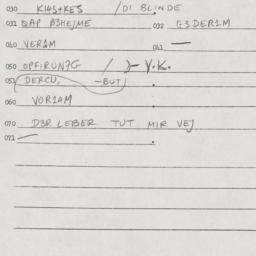 030 KI4S+KES /DI BLINDE
031 QAP B3HEJME 032 G3DER1M
040 VER1M 041 —
050 OPFIRUN7G / Y.K.
051 DERCU, -BUT
060 VOR1AM
070 D3R LEBER TUT MIR VEJ
071 —